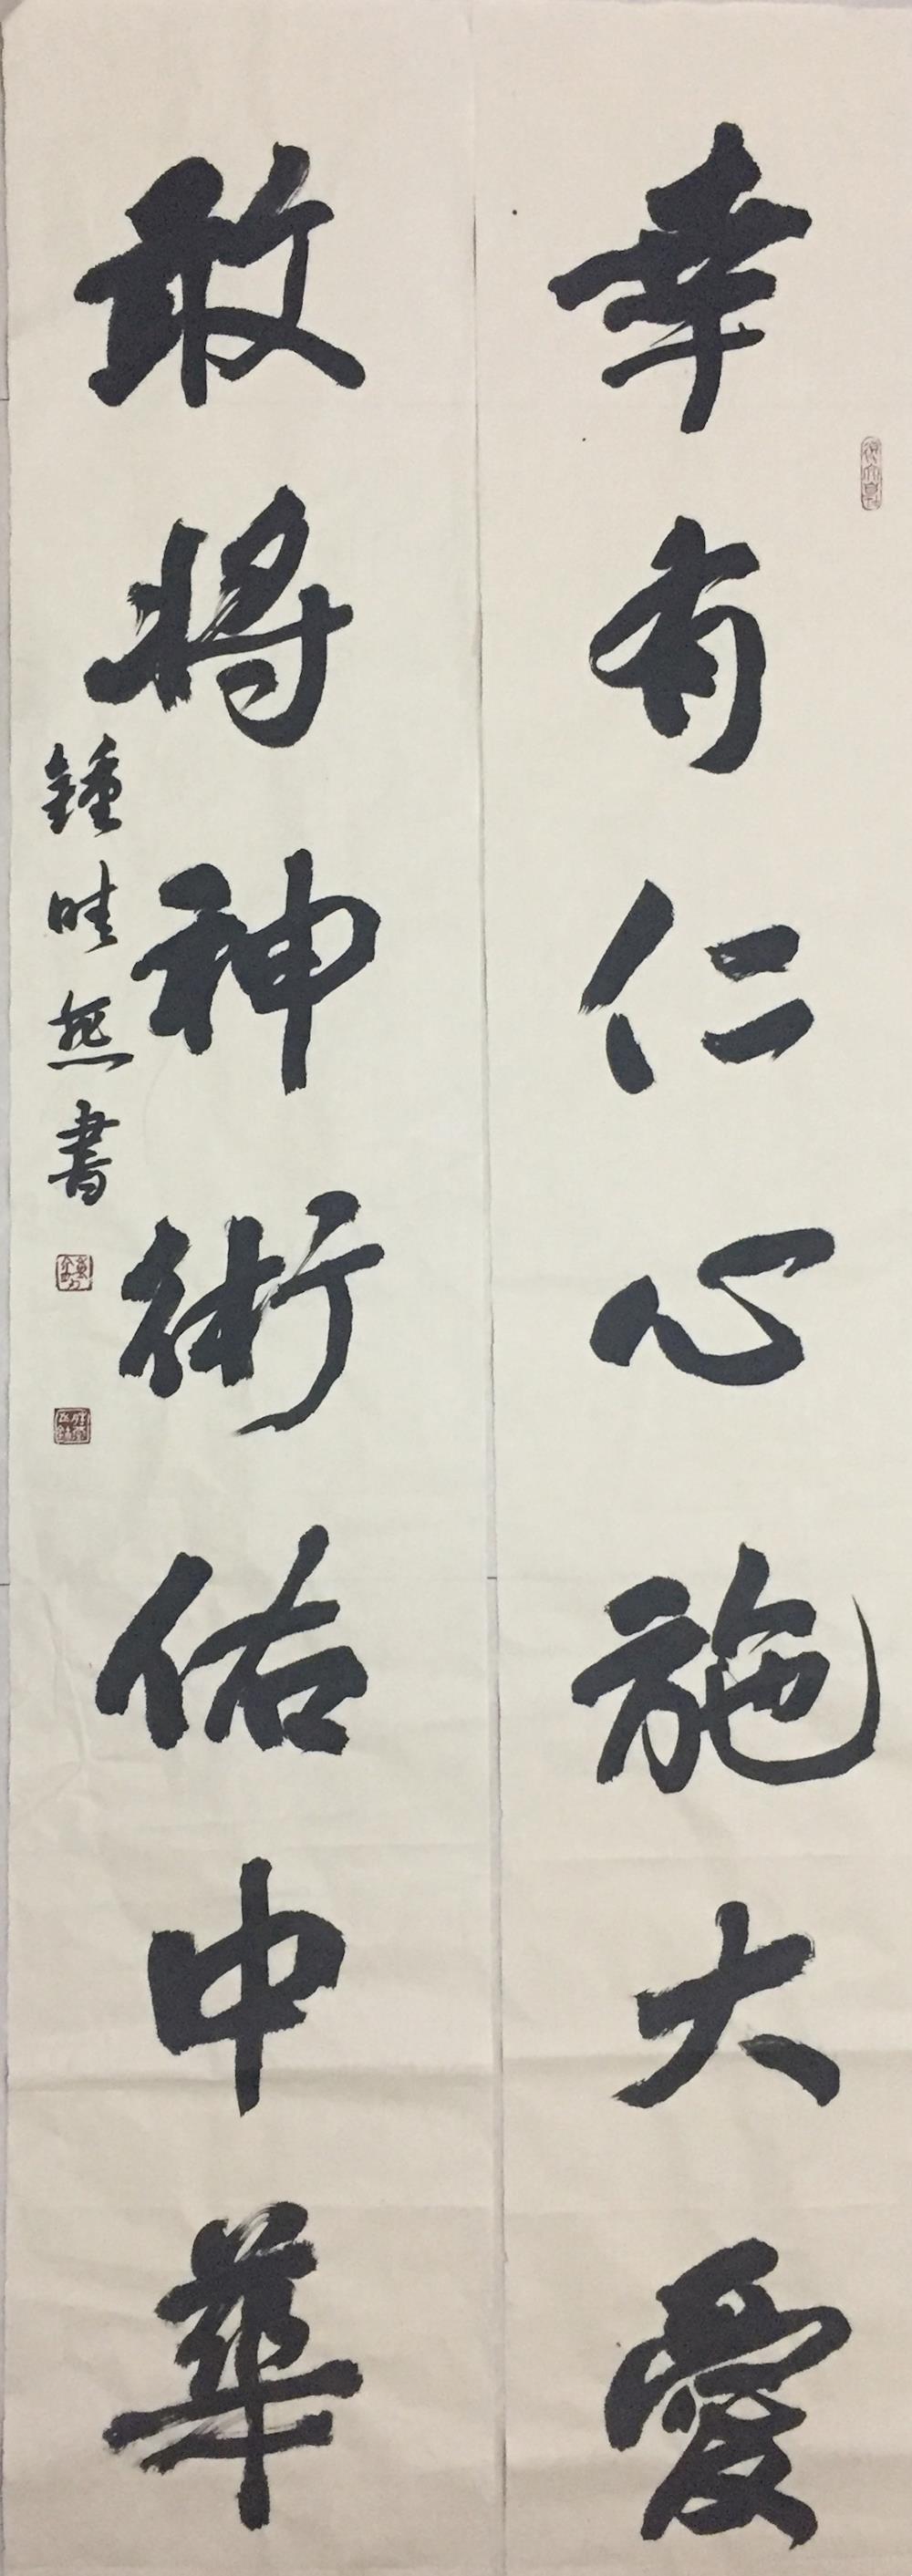 幸有仁心施大愛
敢將神術佑中華
鍾晴燕書